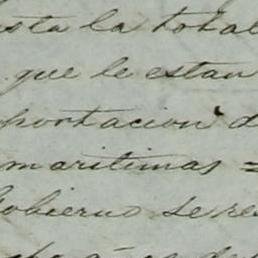 sta la total
que le estan
portacion d
maritimas =
Gobierno se re